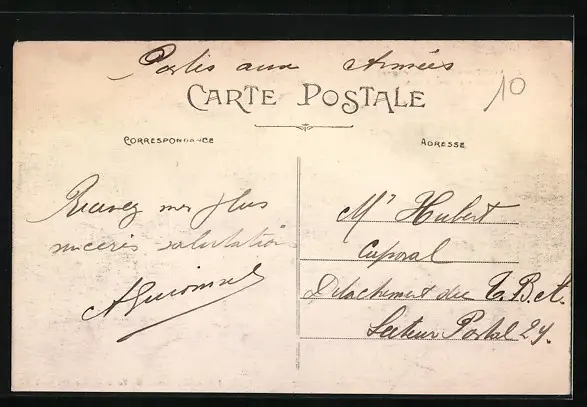 Postes aux Armées
10
CARTE POSTALE
CORRESPONDANCE
ADRESSE
Recevez mes plus
sinceres salutations
Mr Hubert
Caporal
Détachement du C. B. A.
Secteur Postal 24.